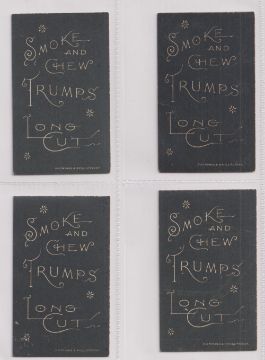 SMOKE
AND
CHEW
TRUMPS
LONG
CUT
SMOKE
AND
CHEW
TRUMPS
LONG
CUT
SMOKE
AND
CHEW
TRUMPS
LONG
CUT
SMOKE
AND
CHEW
TRUMPS
LONG
CUT